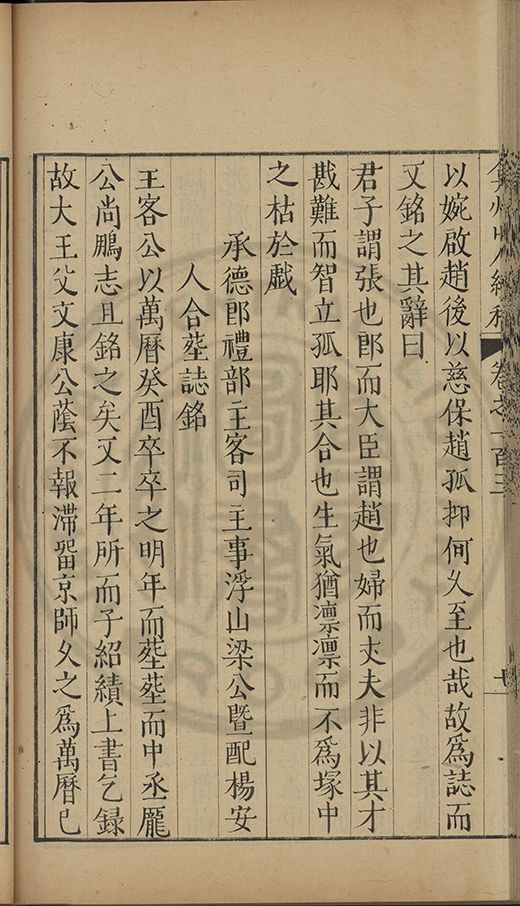 弇州山人續稿 卷之一百三
以婉啟趙後以慈保趙孤抑何乆至也哉故爲誌而
又銘之其辭曰
君子謂張也郎而大臣謂趙也婦而丈夫非以其才
戡難而智立孤耶其合也生氣猶凛凛而不爲塚中
之枯於戲
承德郎禮部主客司主事浮山梁公暨配楊安
人合塟誌銘
主客公以萬曆癸酉卒卒之明年而塟塟而中丞龎
公尚鵬志且銘之矣又二年所而子紹績上書乞録
故大王父文康公蔭不報滯畱京師乆之爲萬曆已